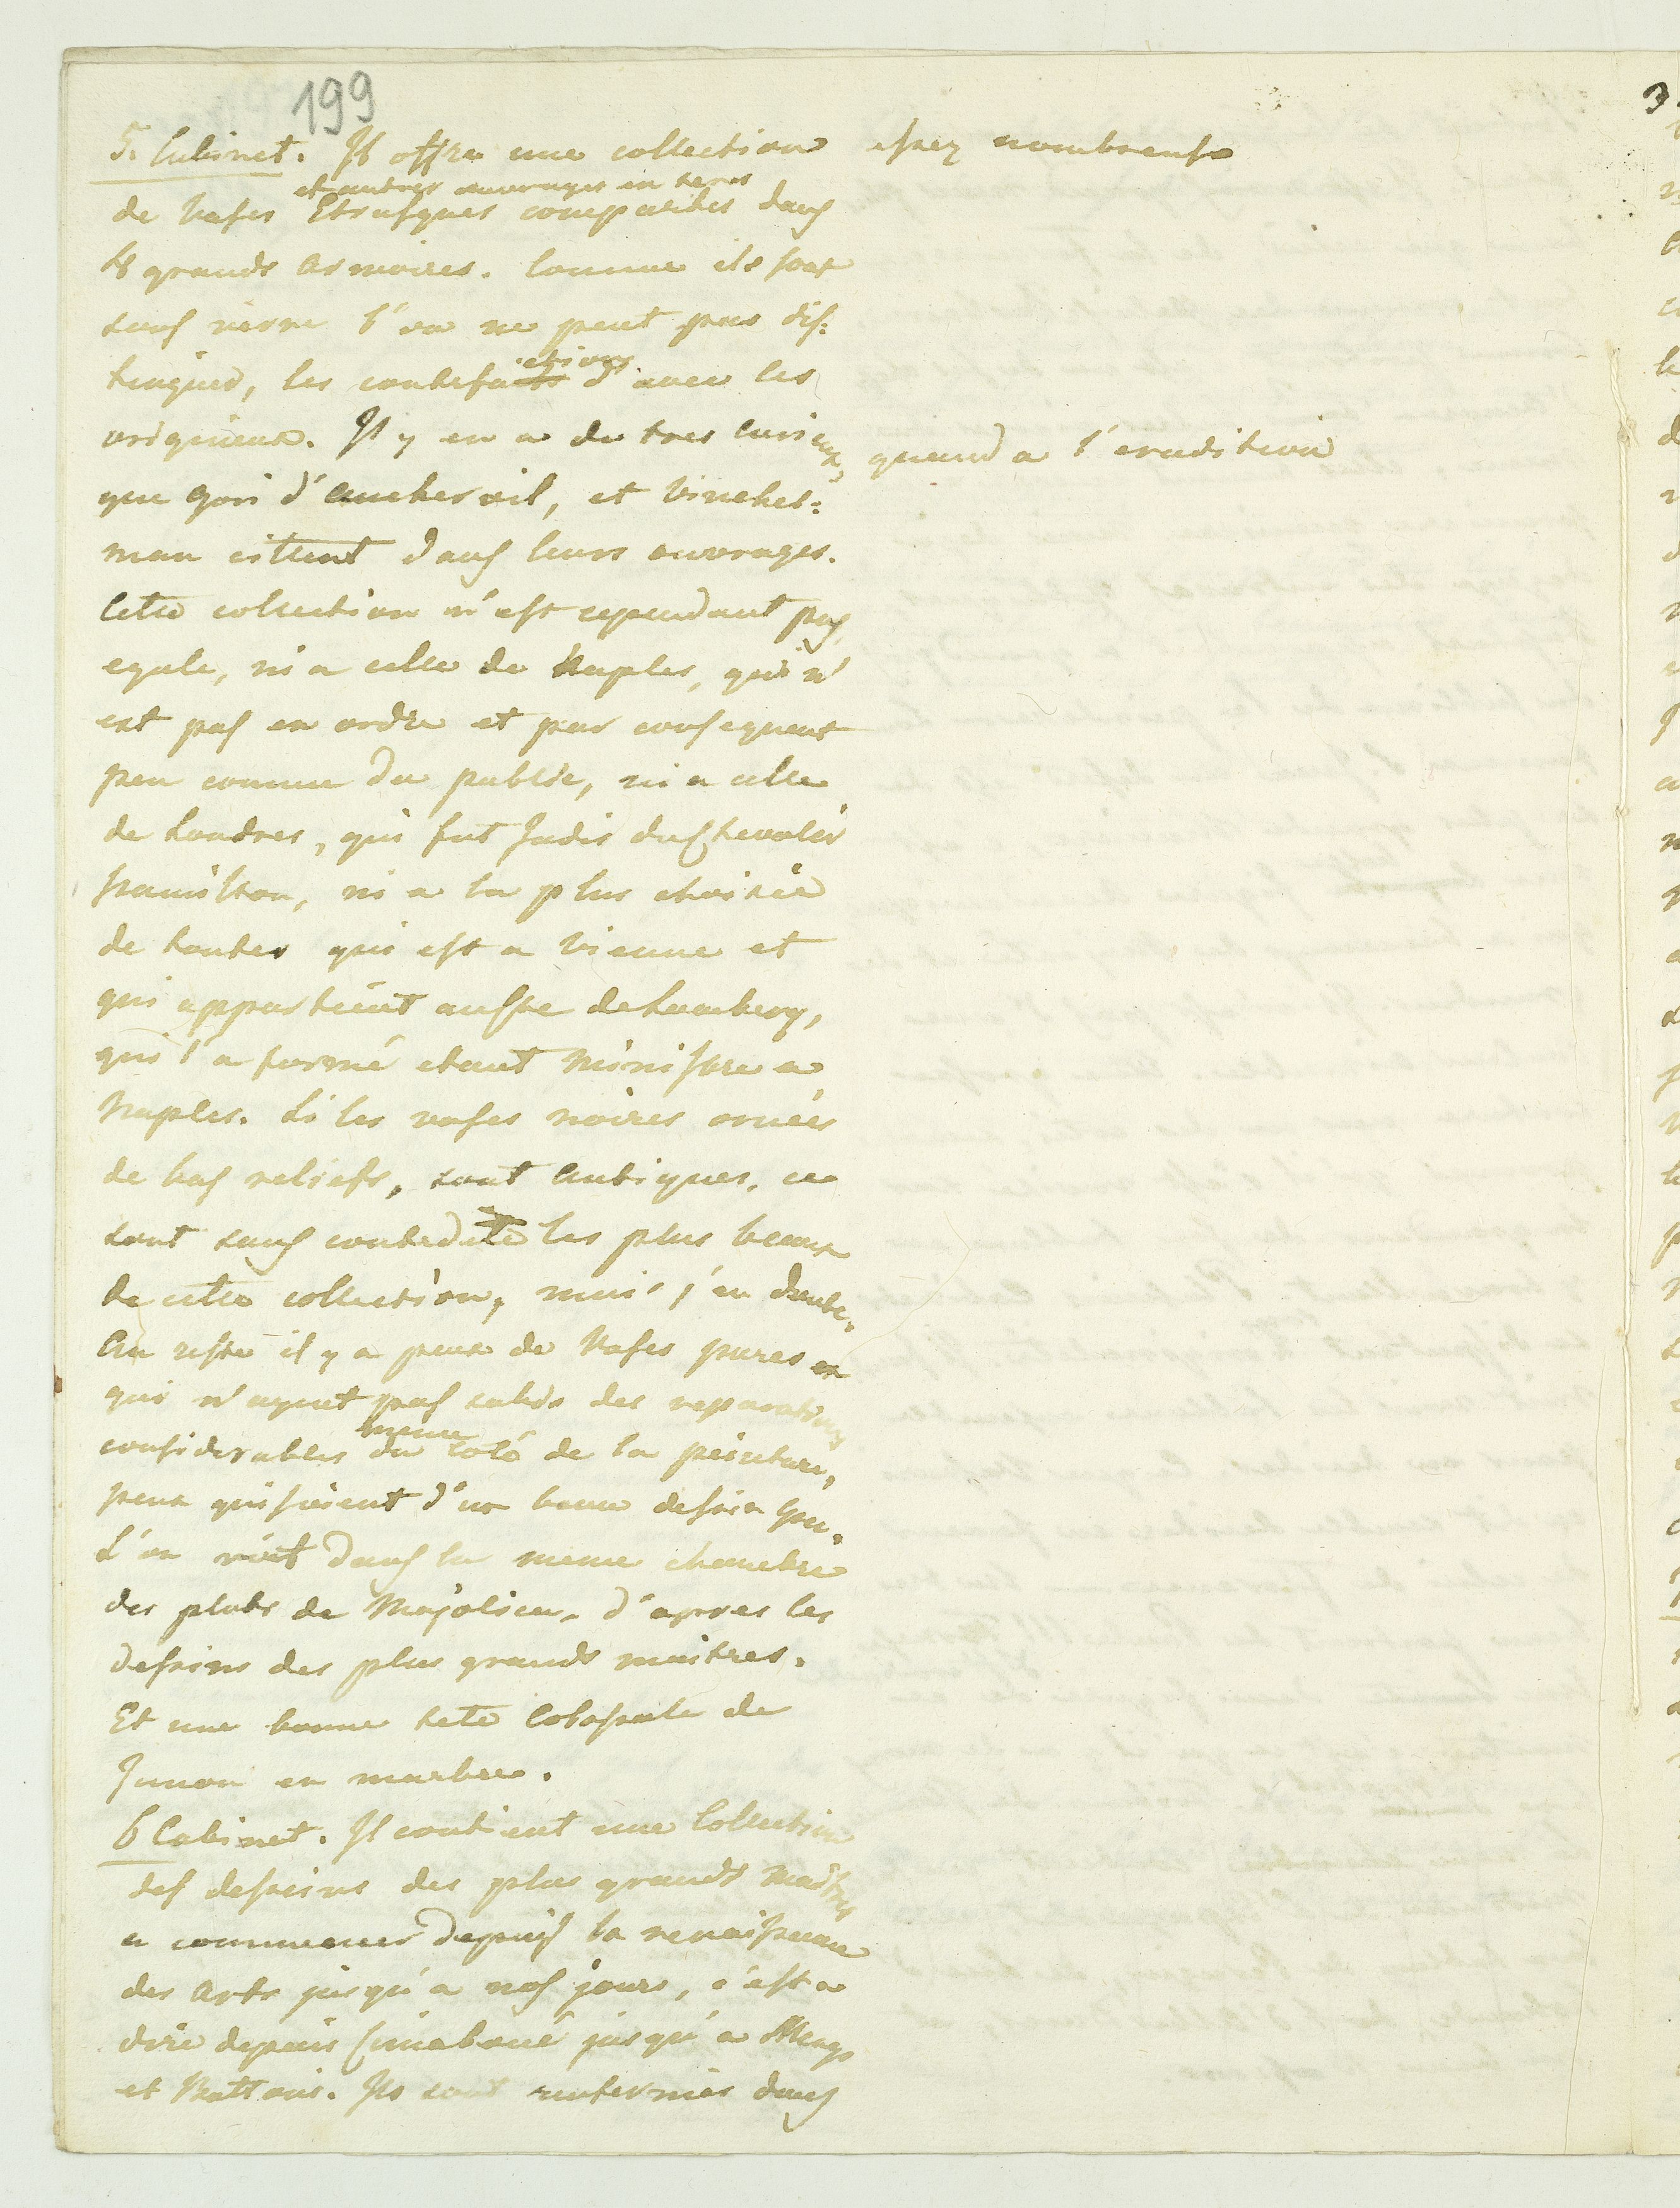 199
5. Cabinet. Il offre une collection assez nombreuse
et autres ouvrages en terre
de Vases Etrusques compartis dans
18 grands Armoires. Comme ils sont
sous verre l'on ne peut pas dis:
tinguer, les contrefactions d'avec les
originaux. Il y en a de tres curieux, quand a l'erudition
que Gori d'Anchervil, et Vinckel:
man cittent dans leurs ouvrages.
Cette collection n'est cependant pas
egale, ni a celle de Naples, qui n'
est pas en ordre et par consequent
peu connue du public, ni a celle
de Londres, qui fut Jadis du Chevalier
Hamilton, ni a la plus choisie
de toutes qui est a Vienne et
qui appartient au Cte de Lamberg,
qui l'a formé etant Ministre a
Naples. Si les vases noires ornées
de bas reliefs, sont Antiques, ce
sont sans contredite les plus beaux
de cette collection, mais j'en doute.
Au reste il y a peux de Vases pures et
qui n'ayent pas subis des reparations
considerables meme du coté de la peinture,
peux qui soient d'un beau dessein
L'on voit dans la meme chambre
des plats de Majolica, d'apres les
dessins des plus grands maitres.
Et une bonne tete Colossale de
Junon en marbre.
6 Cabinet. Il contient une Collection
des desseins des plus grands Maitres
a commencer depuis la renaissance
des Arts jusqu'a nos jours, c'est a
dire depuis Cimaboué jusqu'a Mengs
et Battoni. Ils sont renfermés dans